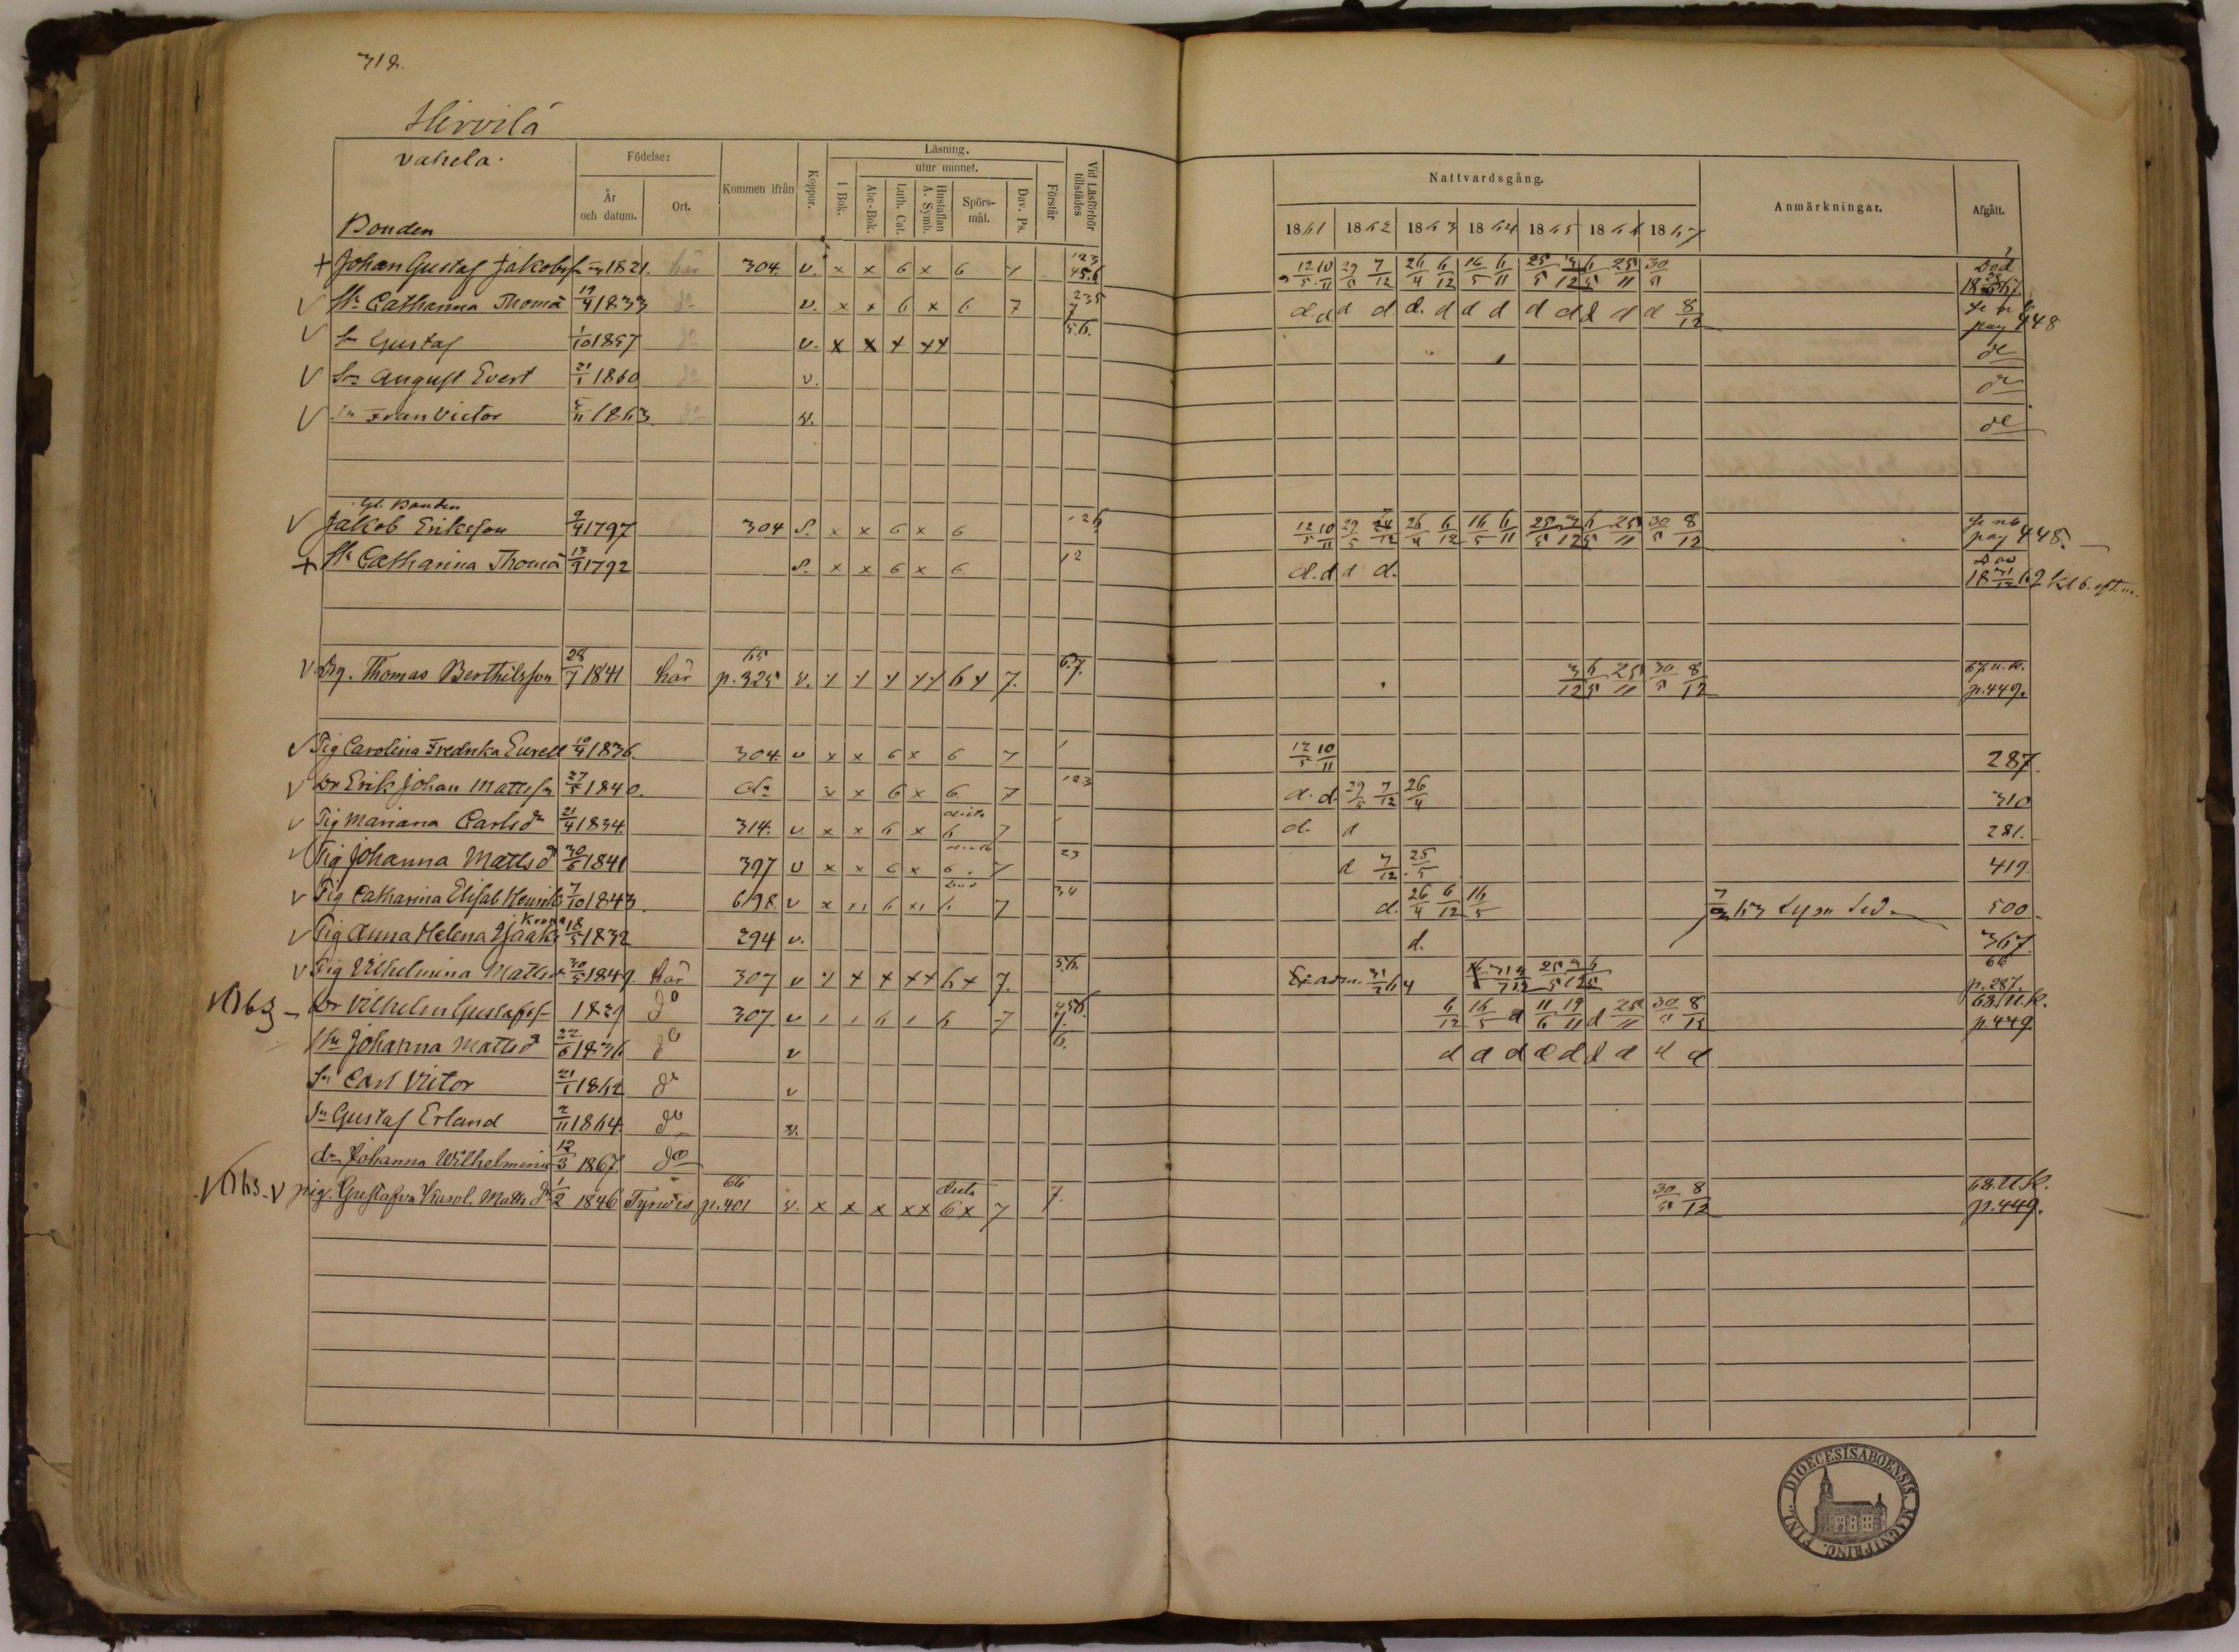 318.
Hirvilä
Vahela.
Födelse:
År och datum.
Ort.
Kommen ifrån
Koppor.
Läsning.
utur minnet.
I Bok.
Abc-Bok.
Luth. Cat.
Hustaflan A. Symb.
Spörs-mål.
Dav. Ps.
Förstår
Vid Läsförhör tillstädes
Nattvardsgång.
1861 1862 1863 1864 1865 1866 1867
Anmärkningar.
Afgått.
Bonden
+ Johan Gustaf Jakobss 1821. här 304 v. x x 6 x 6 7 123 45.6 12/5 10/11 29/5 7/12 26/4 6/12 16/5 6/11 25/5 3/12 6/5 25/11 30/5 Död
V Hu Catharina Thomä 19/4 1833 do v. x x 6 x 6 7 235 7 d. d d d d. d d d d d d d d 8/12 pag 448
V Sn Gustaf 1/10 1857 do v. x x x xx 5.6. de
V Sn August Evert 21/1 1860 do v. de
V Sn Fran Victor 5/11 1863 do v. de
Gl. Bonden
V Jakob Eriksson 9/4 1797 304 S. x x 6 x 6 126 12/5 10/11 29/5 7/12 26/4 6/12 16/5 6/11 25/5 3/12 6/5 25/11 30/5 8/12 pag 448.
+ Hu Catharina Thomä 1792 S. x x 6 x 6 12 d. d d d. 18 31/12 62 kl 6. eft.m.
V Drg. Thomas Berthilsson 28/7 1841 här 65 p. 325 v. 6 7. 6.7. 3/12 6/5 25/11 30/5 8/12 67 u.k. p. 449.
V Pig Carolina Fredrika Eurell 10/4 1836. 304. v x x 6 x 6 7 1 12/5 10/11 287.
V Dr Erik Johan Mattss 27/5 1840. do x x 6 x 6 7 123 d. d. 29/5 7/12 26/4 310
V Pig Mariana Carlsd 21/4 1834. 314. v x x 6 x 6 7 d. d 281.
V Pig Johanna Mattsd 30/6 1841 397 v x x 6 x 6 7 23 d 7/12 25/5 419
V Pig Catharina Elisab Henriks 7/10 1843. 698 v x 6 7 34 d. 26/4 6/12 16/5 500
V Pig Anna Helena Isaaks 18/5 1832 294 v. d. 367.
V Pig Vilhelmina Mattsd 30/5 1849. här 307 v 7. 5.6. 66 p. 287.
Dr Vilhelm Gustafss 1829 do 307 v 7 456 7. 6/12 16/5 d 11/6 19/11 d 25/11 30/5 8/12 68 u.k. p. 449
Hu Johanna Mattsd 22/6 1836 do v 6. d d d d d d d d d
Sn Carl Victor 21/1 1862 do v
Sn Gustaf Erland 2/11 1864. do v.
dr Johanna Wilhelmina 12/3 1867 do
V pig. Gustafva Karol. Matts d 1/2 1846 Tyrvis 66 p. 401 v. x x x xx 6 x 7 7. 30/5 8/12 68 u.k. p. 449.
DIOECESIS ABOENSIS. MAGNI PRINC. FINL.